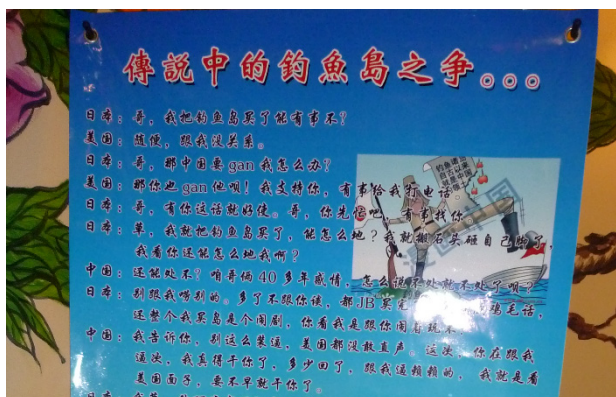 傳説中的釣魚島之争。。。
日本：哥，我把钓鱼岛买了能有事不？
美国：随便，跟我没关系。
日本：哥，那中国要gan我怎么办？
美国：那你也gan他呗！我支持你，有事给我打电话。
日本：哥，有你这话就好使。哥，你先忙吧，有事找你。
日本：草，我就把钓鱼岛买了，能怎么地？我就搬石头砸自己脚了，
我看你还能怎么地我啊？
中国：还能处不？咱哥俩40多年感情，怎么说不处就不处了呗？
日本：别跟我唠别的。多了不跟你谈，都JB买完
还整个我买岛是个闹剧，你看我是跟你闹着玩不
中国：我告诉你，别这么装逼，美国都没敢直声。这次，你在跟我
逼次，我真得干你了，多少回了，跟我逼赖赖的，我就是看
美国面子，要不早就干你了。